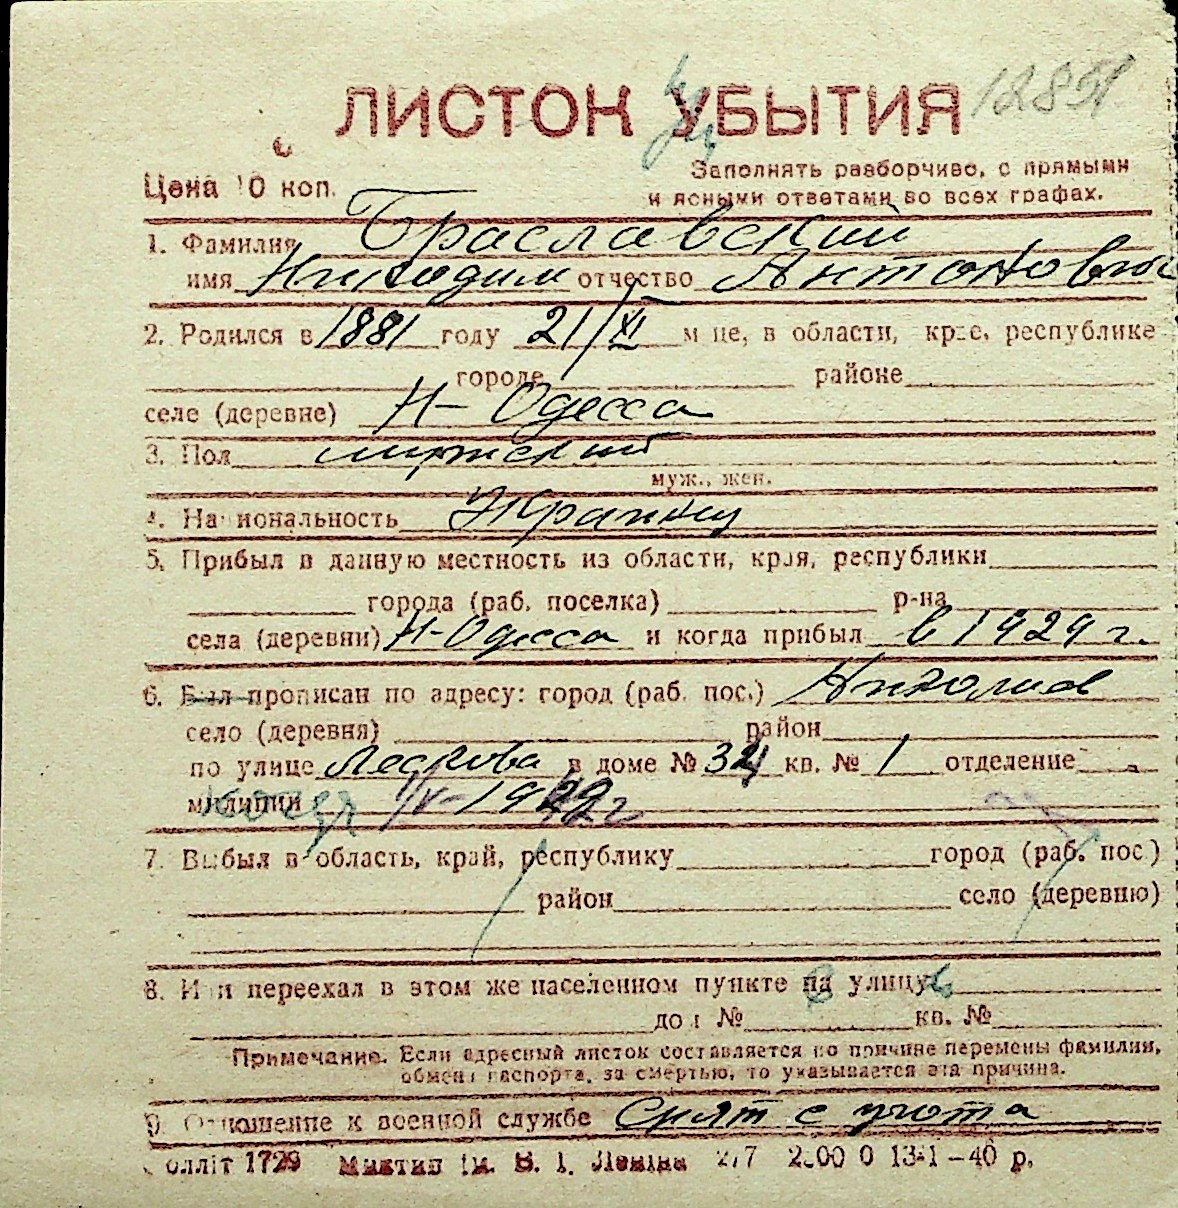 ЛИСТОК УБЫТИЯ 12851
Цена 10 коп.
Заполнять разборчиво, с прямыми
и ясными ответами во всех графах.
1. Фамилия Браславский
имя Никодим отчество Антонович
2. Родился в 1881 году 21/XI м-це, в области, крае, республике
городе районе
селе (деревне) Н-Одесса
3. Пол мужской
муж., жен.
4. Национальность Украинец
5. Прибыл в данную местность из области, края, республики
города (раб. поселка) р-на
села (деревни) Н-Одесса и когда прибыл в 1929 г.
6. Был прописан по адресу: город (раб. пос.) Николаев
село (деревня) район
по улице Лескова в доме № 32 кв. № 1 отделение
милиции
7. Выбыл в область, край, республику город (раб. пос)
район село (деревню)
8. Или переехал в этом же населенном пункте на улицу
дом № кв. №
Примечание. Если адресный листок составляется по причине перемены фамилии,
обмена паспорта, за смертью, то указывается эта причина.
9. Отношение к военной службе Снят с учота
1729 В. І. Леніна 1341—40 р.